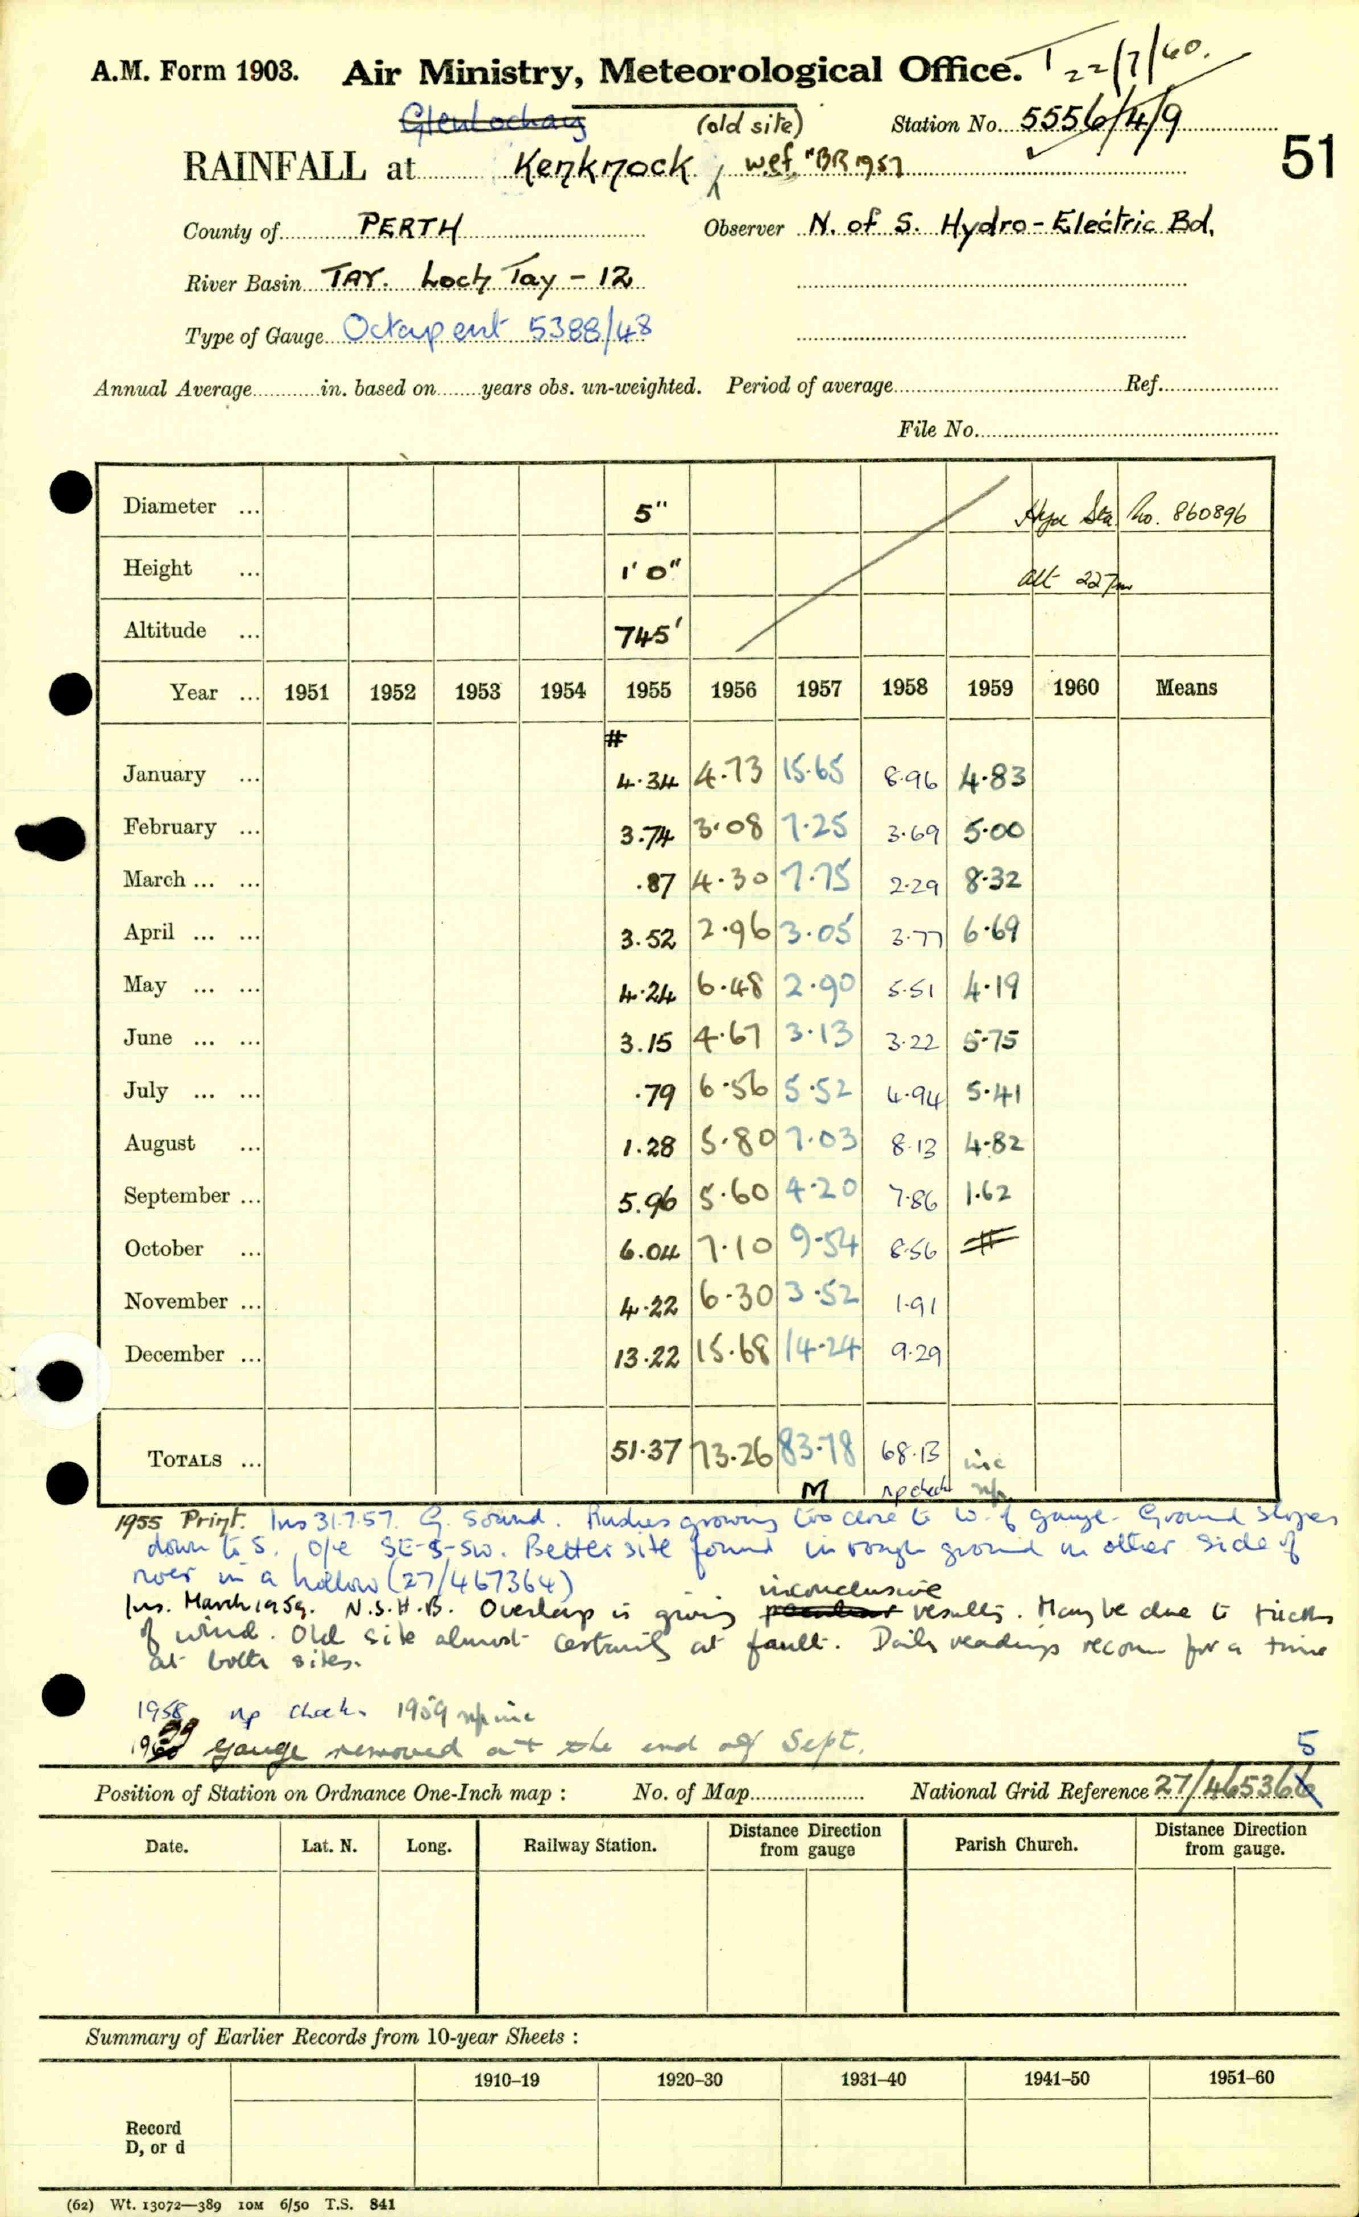 A.M. Form 1903. Air Ministry, Meteorological Office. T 22/7/60.
Glenlochay (old site) Station No. 5556/4/9
RAINFALL at Kenknock w.e.f. "BR 1957 51
County of PERTH Observer N. of S. Hydro-Electric Bd.
River Basin TAY. Loch Tay - 12
Type of Gauge Octapent 5388/48
Annual Average in. based on years obs. un-weighted. Period of average Ref.
File No.
Diameter ... 5" Hyd Sta. No. 860896
Height ... 1' 0" alt 227m
Altitude ... 745'
Year ... 1951 1952 1953 1954 1955 1956 1957 1958 1959 1960 Means
#
January ... 4.34 4.73 15.65 8.96 4.83
February ... 3.74 3.08 7.25 3.69 5.00
March ... ... .87 4.30 7.75 2.29 8.32
April ... ... 3.52 2.96 3.05 3.77 6.69
May ... ... 4.24 6.48 2.90 5.51 4.19
June ... ... 3.15 4.67 3.13 3.22 5.75
July ... ... .79 6.56 5.52 4.94 5.41
August ... 1.28 5.80 7.03 8.13 4.82
September ... 5.96 5.60 4.20 7.86 1.62
October ... 6.04 7.10 9.54 8.56 #
November ... 4.22 6.30 3.52 1.91
December ... 13.22 15.68 14.24 9.29
TOTALS ... 51.37 73.26 83.78 68.13 inc
M np check np
1955 Print. Ins 31.7.57. G. Sound. Rushes growing too close to W. of gauge. Ground slopes
down to S. O/e SE-S-SW. Better site found in rough ground on other side of
river in a hollow (27/467364)
inconclusive
Ins. March 1959. N.S.H.B. Overlap is giving results. May be due to tricks
of wind. Old site almost certainly at fault. Daily readings recom for a time
at both sites.
1958 np check 1959 np inc
1959 Gauge removed at the end of Sept.
5
Position of Station on Ordnance One-Inch map : No. of Map National Grid Reference 27/465366
Date. Lat. N. Long. Railway Station. Distance Direction from gauge Parish Church. Distance Direction from gauge.
Summary of Earlier Records from 10-year Sheets :
1910–19 1920–30 1931–40 1941–50 1951–60
Record
D, or d
(62) Wt. 13072—389 10M 6/50 T.S. 841